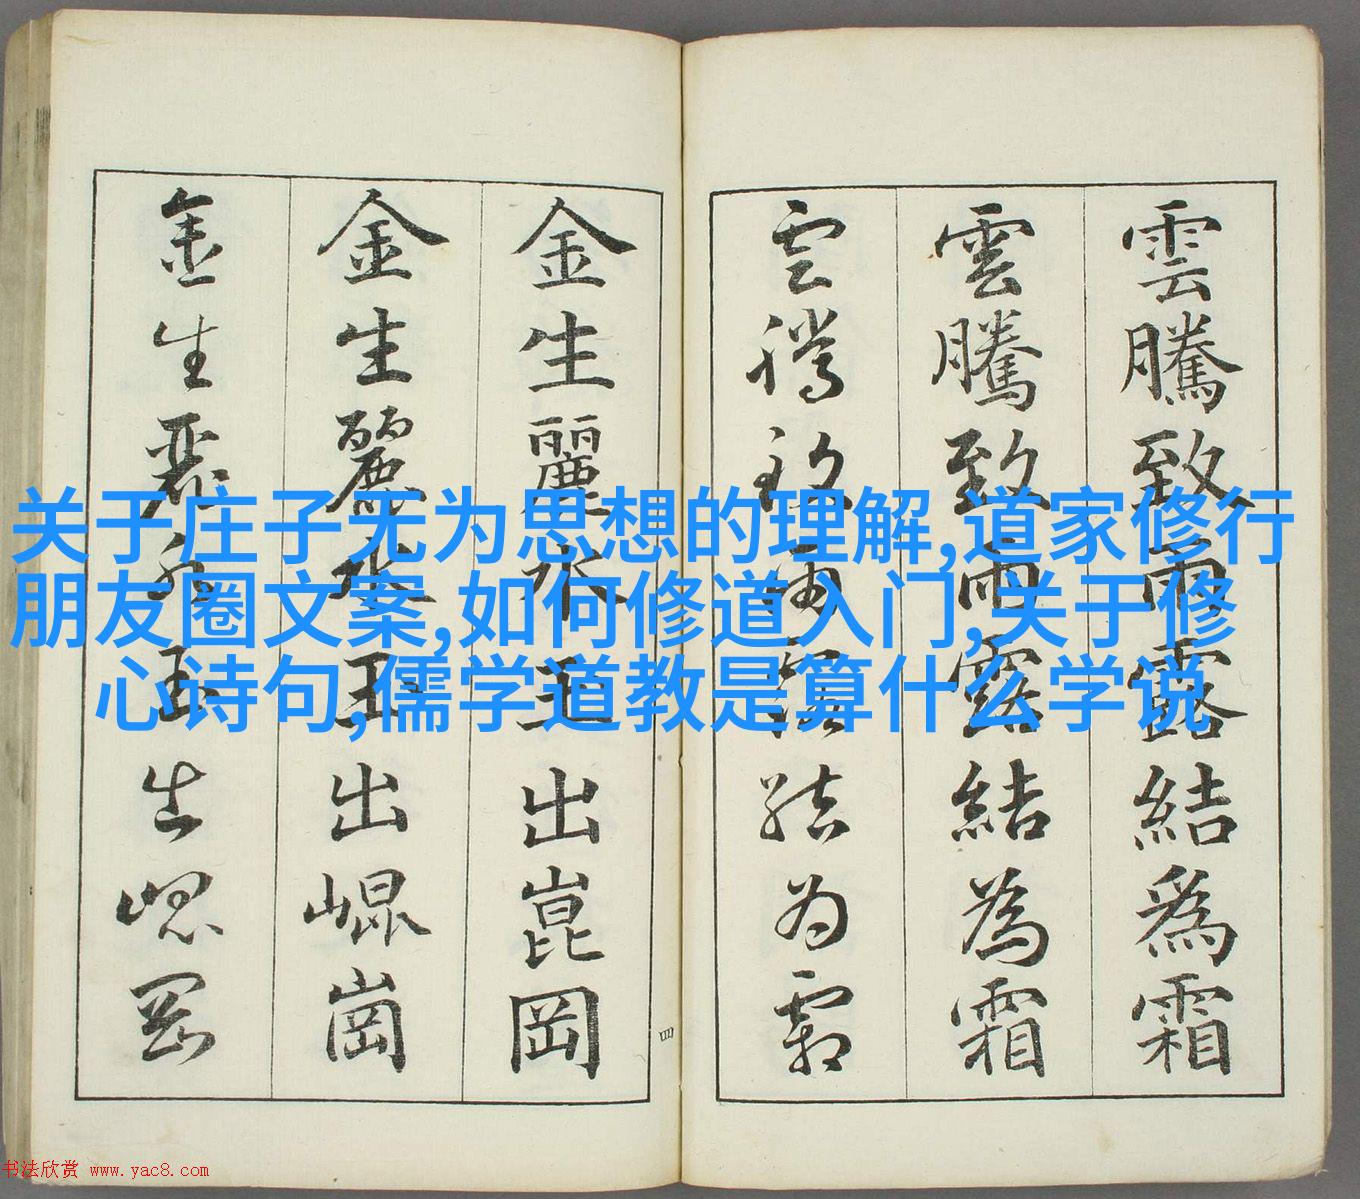 雲騰致雨露結爲霜
雲騰致雨露結為霜
雲騰致雨露结为霜
金生麗水玉出崑岡
金生麗水玉出崐崗
金生麗水玉出崐岡
四
关于庄子无为思想的理解,道家修行
朋友圈文案,如何修道入门,关于修
心诗句,儒学道教是算什么学说
书法欣赏 www.yac8.com